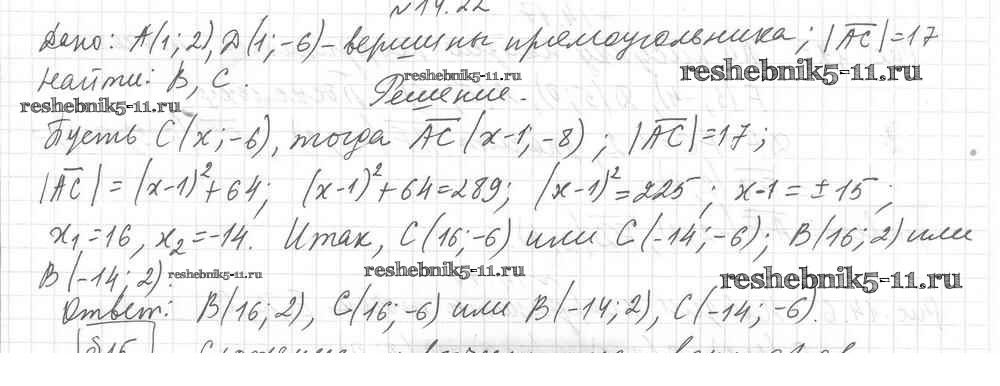 №14.22
Дано: A(1; 2), D(1; -6) - вершины прямоугольника; |AC| = 17
Найти: B, C.
reshebnik5-11.ru
reshebnik5-11.ru
reshebnik5-11.ru
Решение.
Пусть C(x; -6), тогда AC(x-1; -8); |AC| = 17;
|AC| = (x-1)²+64; (x-1)²+64=289; (x-1)²=225; x-1 = ±15;
x₁=16, x₂=-14. Итак, C(16; -6) или C(-14; -6); B(16; 2) или
B(-14; 2).
reshebnik5-11.ru
reshebnik5-11.ru
reshebnik5-11.ru
Ответ: B(16; 2), C(16; -6) или B(-14; 2), C(-14; -6).
§15